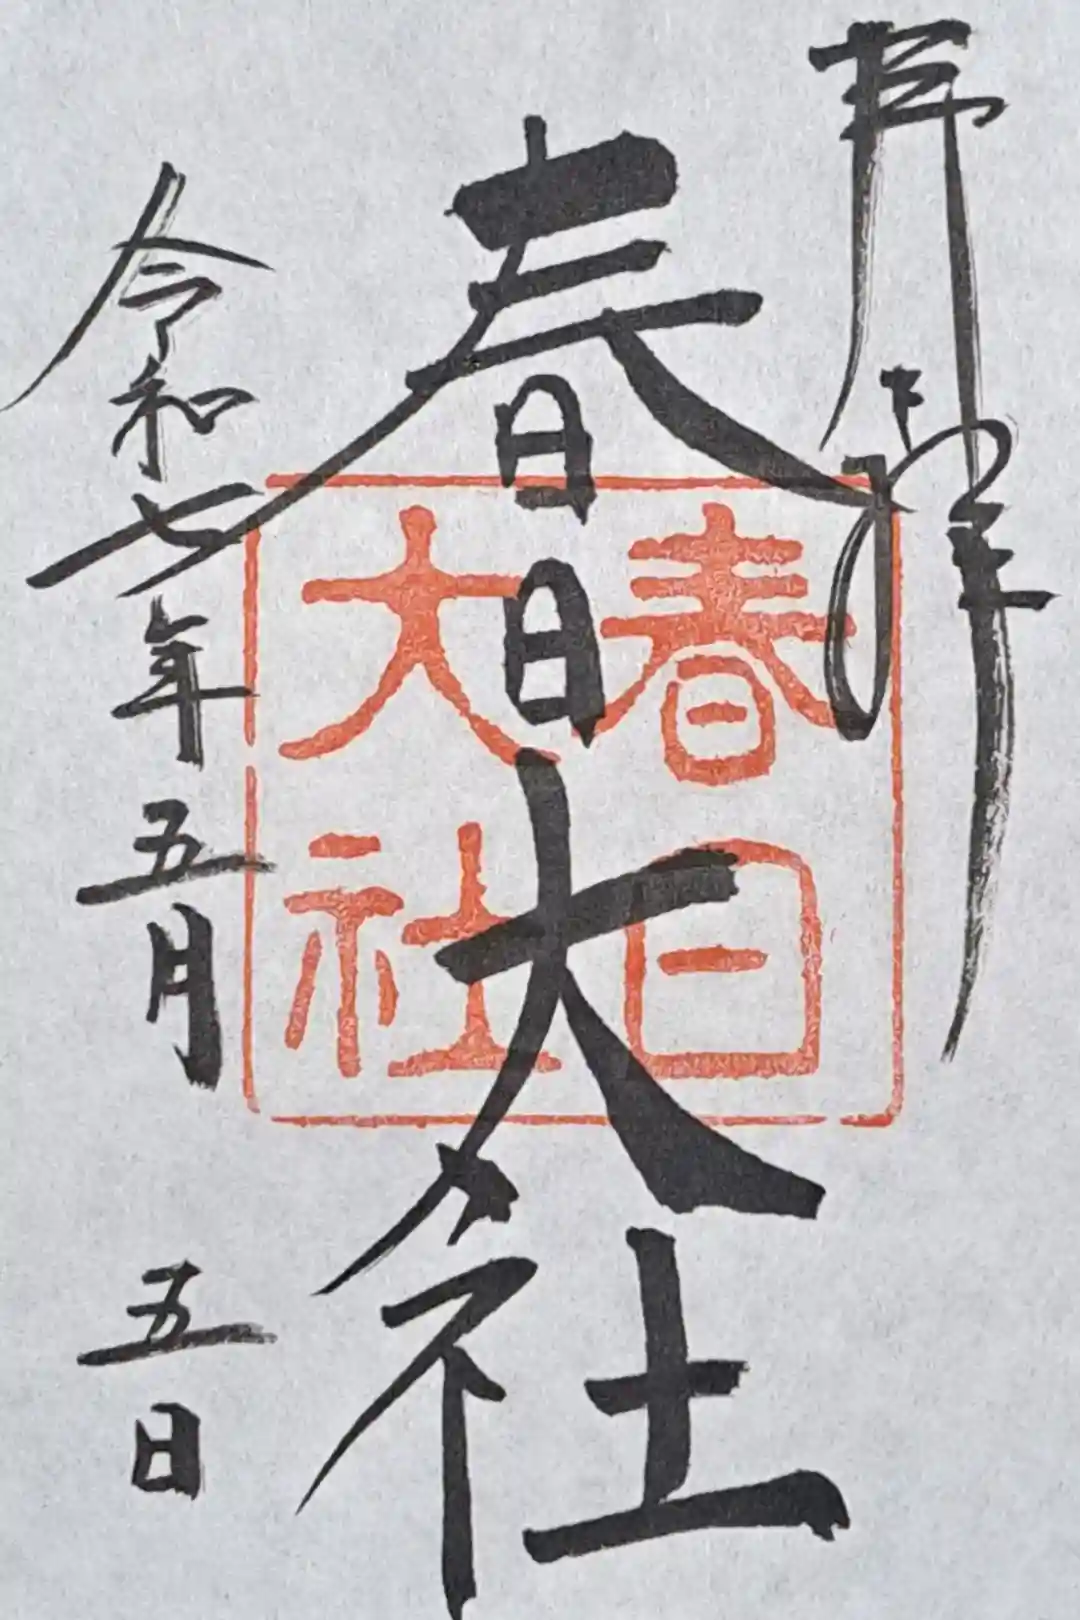 奉拝
春日大社
春日
大社
令和七年五月五日